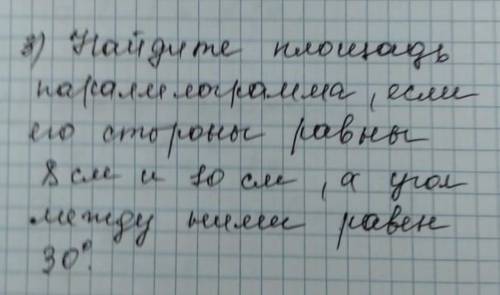 3) Найдите площадь
параллилограмма, если
его стороны равны
8 см и 10 см, а угол
между ними равен
30°.